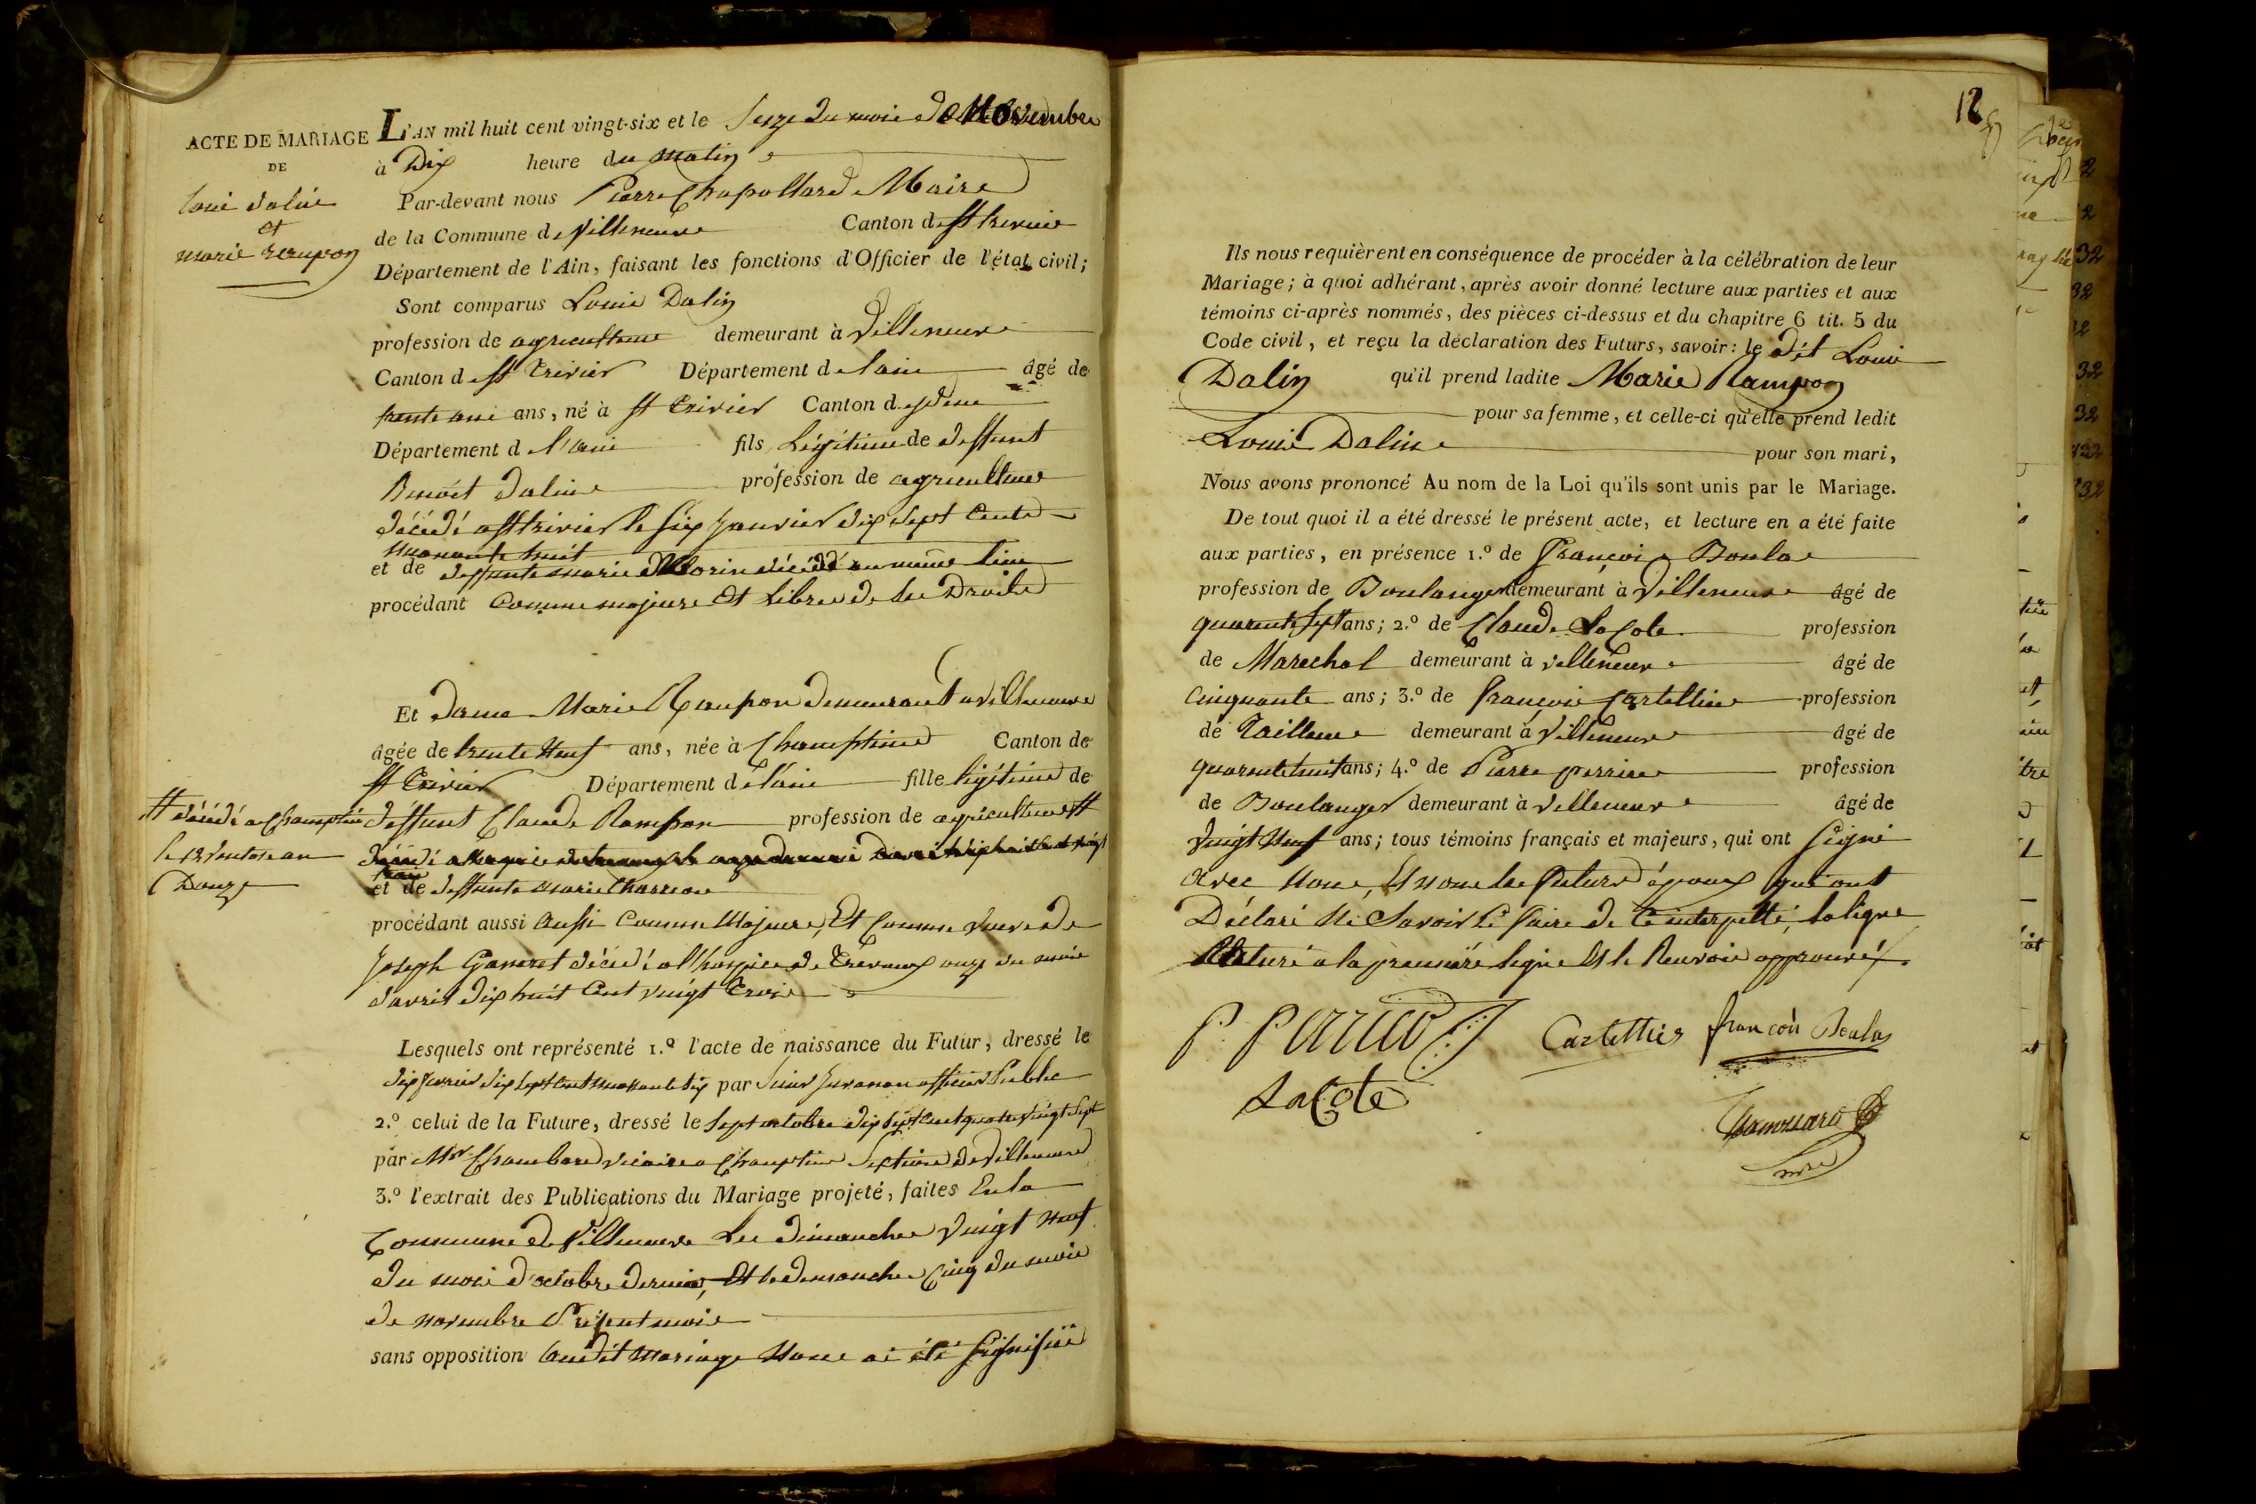 ACTE DE MARIAGE
DE
Louis Dalin
et
marie rampon
L'AN mil huit cent vingt-six et le Seize du mois de Novembre
à Dix heure du Matin
Par-devant nous Pierre Chapollard Maire
de la Commune de Villeneuve Canton de St trivier
Département de l'Ain, faisant les fonctions d'Officier de l'état civil;
Sont comparus Louis Dalin
profession de agriculteur demeurant à Villeneuve
Canton de St Trivier Département de lain âgé de
trente ans, né à St Trivier Canton d
Département de l'ain fils Légitime de deffunt
Benoit Dalin profession de agriculteur
décédé a St trivier le six Janvier dix sept Cent
nonante huit
et de deffunte marie Morin décédé au même lieu
procédant Comme majeure Et Libre de Ses Droits
Et dame Marie Rampon demeurant a Villeneuve
âgée de trente Neuf ans, née à Chaneins Canton de
St Trivier Département de lain fille légitime de
deffunt Claude Rampon profession de agriculteur #
# décédé a
le 13 ventose an
Douze
et de deffunte marie Charreton
procédant aussi aussi Comme Majeure, Et Comme veuve de
Joseph Ganeret décédé a l'hospice de Trevoux onze du mois
davril dix huit Cent vingt Trois
Lesquels ont représenté 1.º l'acte de naissance du Futur, dressé le
dix sept cent nonante six par officier Public
2.º celui de la Future, dressé le Sept octobre dix sept cent quatre vingt Sept
par Mr Chambard vicaire a de Villeneuve
3.º l'extrait des Publications du Mariage projeté, faites En la
Commune de Villeneuve Les dimanche vingt neuf
du mois d'octobre dernier, Et le dimanche Cinq du mois
de novembre Présent mois
sans opposition audit mariage Nous ai été Signifiée
12
Ils nous requièrent en conséquence de procéder à la célébration de leur
Mariage; à quoi adhérant, après avoir donné lecture aux parties et aux
témoins ci-après nommés, des pièces ci-dessus et du chapitre 6 tit. 5 du
Code civil, et reçu la déclaration des Futurs, savoir: le dit Louis
Dalin qu'il prend ladite Marie Rampon
pour sa femme, et celle-ci qu'elle prend ledit
Louis Dalin
pour son mari,
Nous avons prononcé Au nom de la Loi qu'ils sont unis par le Mariage.
De tout quoi il a été dressé le présent acte, et lecture en a été faite
aux parties, en présence 1.º de François Boulas
profession de Boulanger demeurant à Villeneuve âgé de
quarente Sept ans; 2.º de Claude LaCote profession
de Marechal demeurant à villeneuve âgé de
Cinquante ans; 3.º de françois Cartellier profession
de Tailleur demeurant à Villeneuve âgé de
quarente huit ans; 4.º de Pierre perrier profession
de Boulanger demeurant à Villeneuve âgé de
Vingt Neuf ans; tous témoins français et majeurs, qui ont Signé
avec Nous, Et non les Futurs époux qui ont
Déclaré Ne Savoir Le faire de Ce interpellé, la ligne
a la première ligne Et le Renvoie approuvé
P. Perrier Cartellier françois Boulas
LaCote